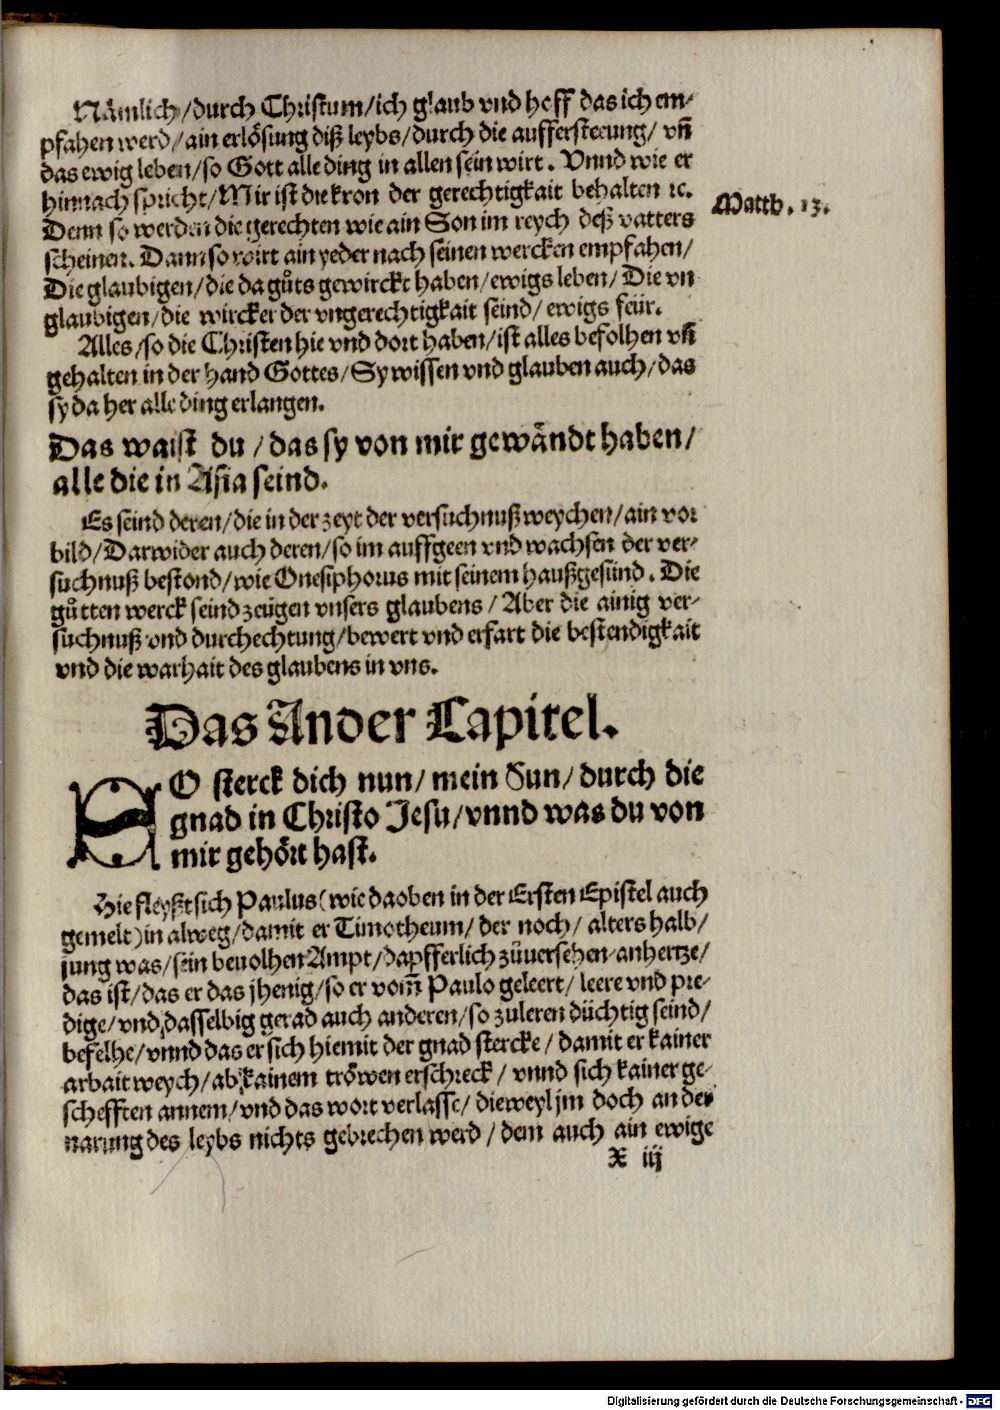 Nämlich/durch Christum/ich glaub vnd hoff das ich em-
pfahen werd/ain erlösung diß leybs/durch die auffersteeung/vñ
das ewig leben/so Gott alle ding in allen sein wirt. Vnnd wie er
hinnach spricht/Mir ist die kron der gerechtigkait behalten ꝛc.
Denn so werden die gerechten wie ain Son im reych deß vatters
scheinen. Dann so wirt ain yeder nach seinen wercken empfahen/
Die glaubigen/die da gůts gewirckt haben/ewigs leben/Die vn
glaubigen/die wircker der vngerechtigkait seind/ewigs feür.
Matth. 13.
Alles/so die Christen hie vnd dort haben/ist alles befolhen vñ
gehalten in der hand Gottes/Sy wissen vnd glauben auch/das
sy da her alle ding erlangen.
Das waist du/das sy von mir gewändt haben/
alle die in Asia seind.
Es seind deren/die in der zeyt der versuchnuß weychen/ain vor
bild/Darwider auch deren/so im auffgeen vnd wachsen der ver-
suchnuß bestond/wie Onesiphorus mit seinem haußgesünd. Die
gůtten werck seind zeügen vnsers glaubens/Aber die ainig ver-
suchnuß vnd durchechtung/bewert vnd erfart die bestendigkait
vnd die warhait des glaubens in vns.
Das Ander Capitel.
SO sterck dich nun/mein Sun/durch die
gnad in Christo Jesu/vnnd was du von
mir gehört hast.
Hie fleyßt sich Paulus(wie da oben in der Ersten Epistel auch
gemelt)in alweg/damit er Timotheum/der noch/alters halb/
jung was/sein beuolhen Ampt/dapfferlich zůuersehen anhertze/
das ist/das er das jhenig/so er vom̃ Paulo geleert/leere vnd pre-
dige/vnd dasselbig gerad auch anderen/so zuleren düchtig seind/
befelhe/vnnd das er sich hiemit der gnad stercke/damit er kainer
arbait weych/ab kainem tröwen erschreck/vnnd sich kainer ge-
schefften annem/vnd das wort verlasse/dieweyl jm doch an der
narung des leybs nichts gebrechen werd/dem auch ain ewige
X iij
Digitalisierung gefördert durch die Deutsche Forschungsgemeinschaft - DFG